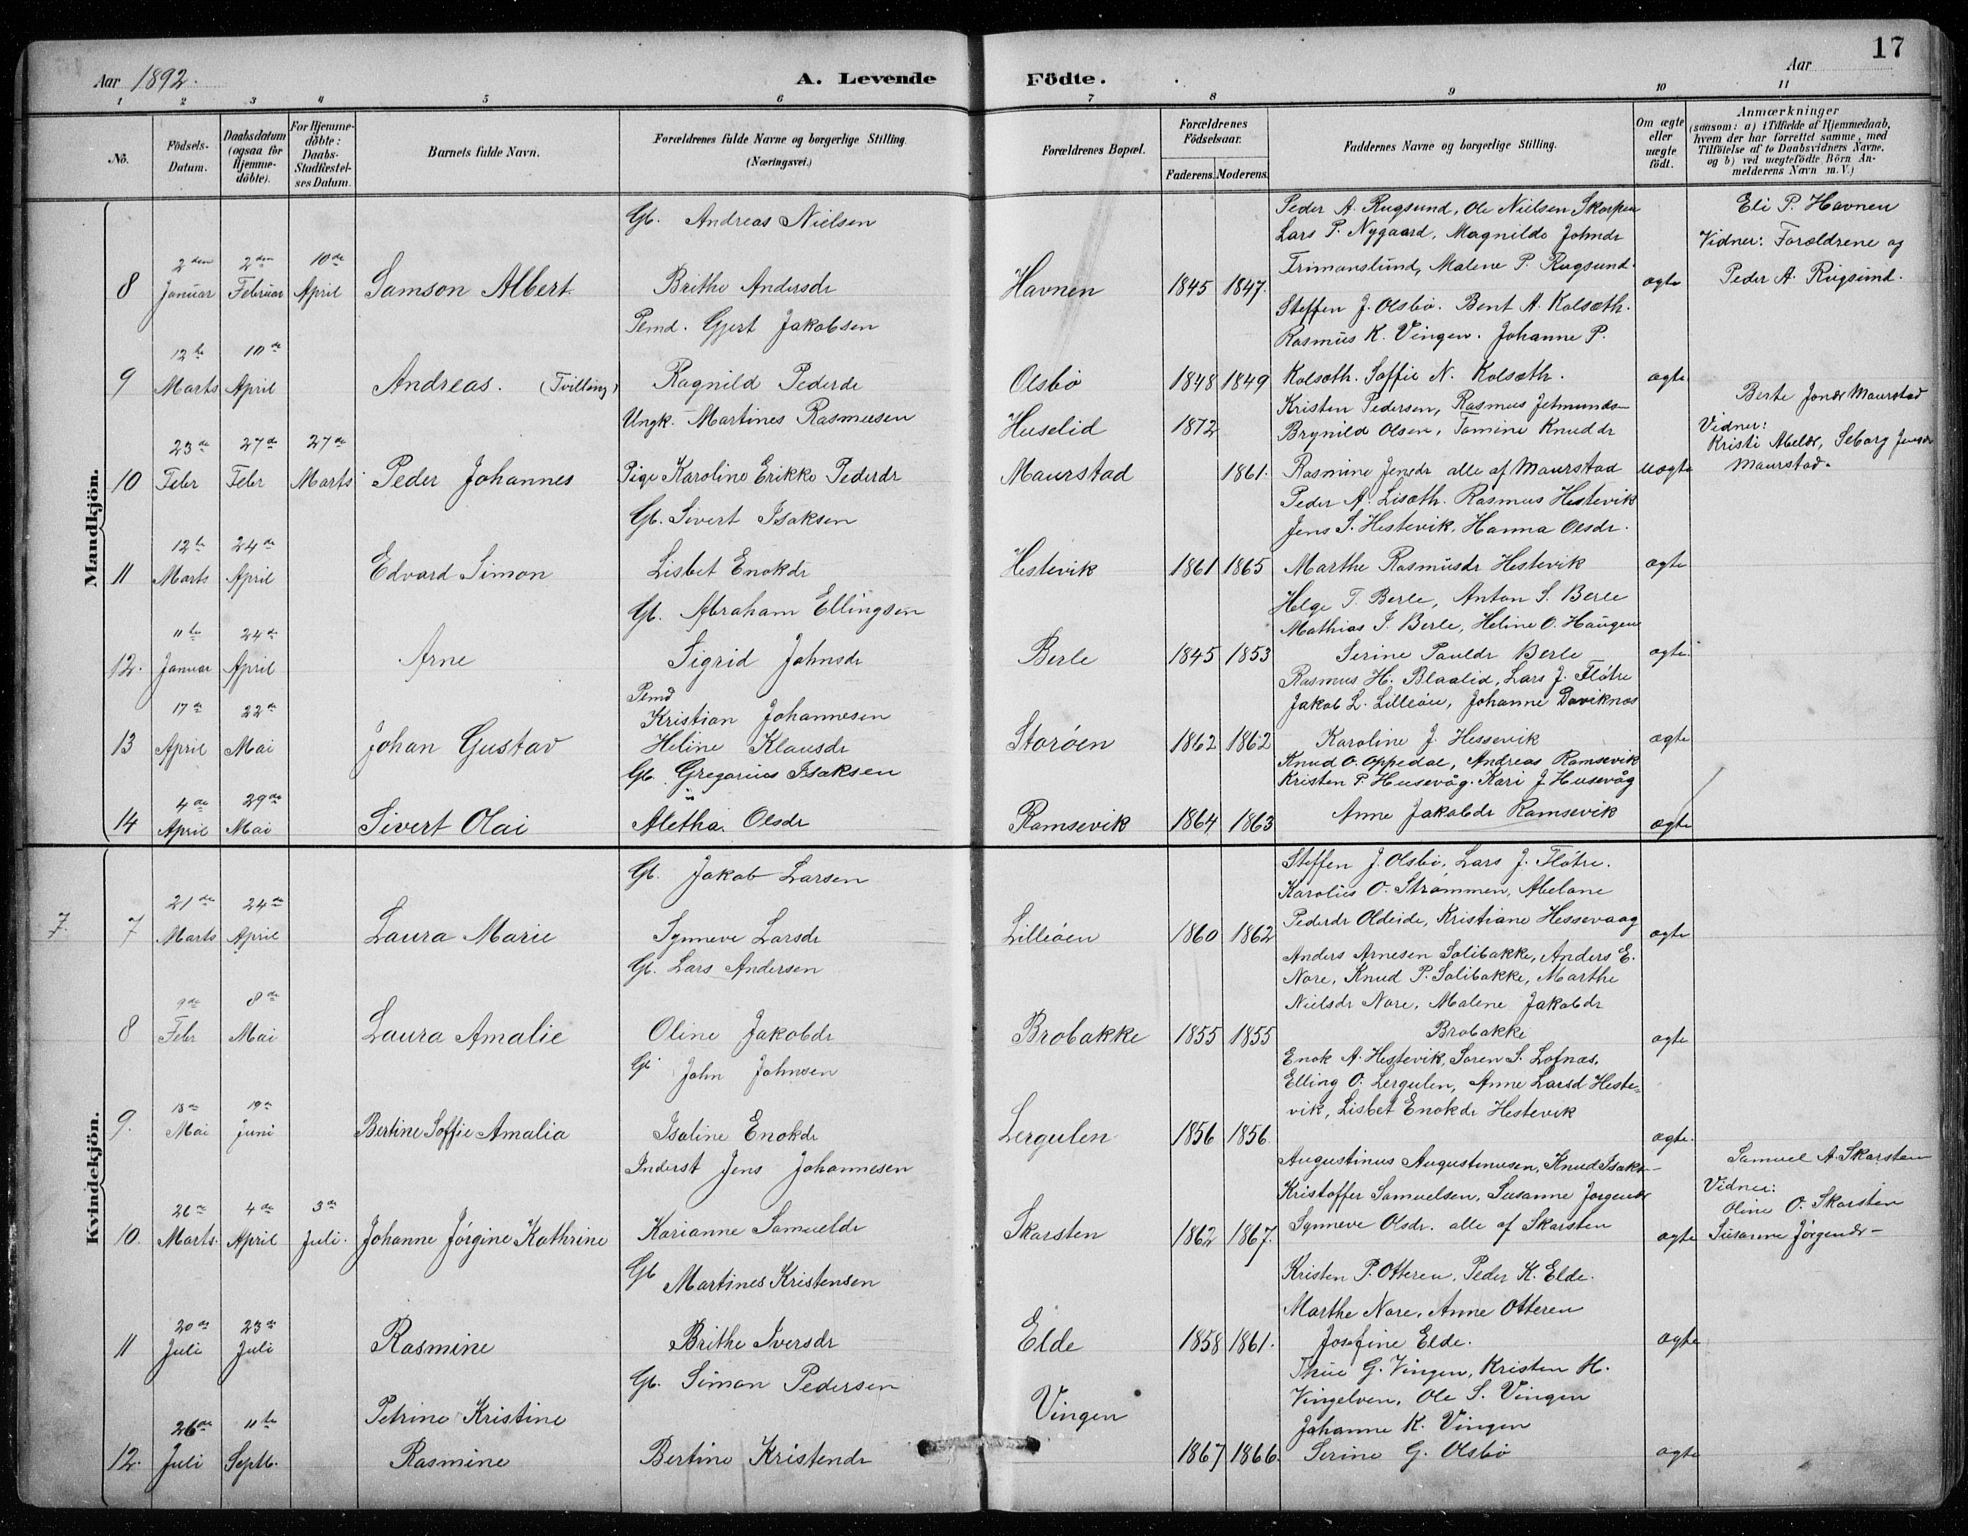 Aar 1892. A. Levende Födte. Aar 17
1 2 3 4 5 6 7 8 9 10 11
No.
Födsels-Datum.
Daabsdatum (ogsaa for Hjemme-döbte).
For Hjemme-döbte: Daabs-Stadfæstel-ses Datum.
Barnets fulde Navn.
Forældrenes fulde Navne og borgerlige Stilling. (Næringsvei.)
Forældrenes Bopæl.
Forældrenes Födselsaar.
Faderens. Moderens.
Faddernes Navne og borgerlige Stilling.
Om ægte eller uægte födt.
Anmærkninger
(saasom: a) i Tilfælde af Hjemmedaab, hvem der har forrettet samme, med Tilföielse af to Daabsvidners Navne, og b) ved uægtefödte Börn An-melderens Navn m. V.)
Mandkjön.
Gb. Andreas Nielsen
Peder A. Rugsund, Ole Nielsen Skorpen
Eli P. Havnen
Lars P. Nygaard, Magnilde Johndr
Vidner: Forældrene og
2den 2den 10de
Trimanslund, Malene P. Rugsund.
8 Januar Februar April Samson Albert Brithe Andersdr Havnen 1845 1847. ægte Peder A. Rugsund.
Steffen J. Olsbø. Bent A. Kolsæth.
Pemd. Gjert Jakobsen
Rasmus K. Vingen. Johanne P.
12te 10de
9 Marts April Andreas. (Tvilling) Ragnild Pederdr Olsbø 1848 1849 Kolsæth. Soffie N. Kolsæth. ægte
Berte Jonsdr Maurstad
Ungk. Martines Rasmusen Huselid 1872 Kristen Pedersen, Rasmus Jetmunds-
Brynild Olsen, Tomine Knuddr
Vidner:
23de 27de 27de
Kristi Abeldr, Seborg Jensdr
10 Febr Febr Marts Peder Johannes Pige Karoline Erikke Pederdr Maurstad 1861. Rasmine Jensdr alle af Maurstad uægte Maurstad.
Peder A. Lisæth. Rasmus Hestevik
Gb. Sivert Isaksen
Jens S. Hestevik, Hanna Olsdr.
12te 24de
11 Marts April Edvard Simon Lisbet Enokdr Hestevik 1861 1865 Marthe Rasmusdr Hestevik ægte
Gb. Abraham Ellingsen
Helge T. Berle, Anton S. Berle
Mathias J. Berle, Heline O. Haugen
11te 24de
12. Januar April Arne Sigrid Johnsdr Berle 1845 1853 Serine Pauldr Berle ægte.
Pemd
Rasmus H. Blaalid, Lars J. Fløtre
Kristian Johannesen
Jakob L. Lilleøen, Johanne Daviknæs
17de 22de
13 April Mai Johan Gustav Heline Klausdr Storøen 1862 1862 Karoline J. Hessevik ægte
Gb. Gregorius Isaksen
Knud O. Oppedal, Andreas Ramsevik
Kristen P. Husevåg. Kari J. Husevåg
4de 29de
14 April Mai Sivert Olai Aletha Olsdr Ramsevik 1864 1863 Anne Jakobdr Ramsevik ægte
Kvindekjön.
Gb. Jakob Larsen
Steffen J. Olsbø, Lars J. Fløtre.
Karolius O. Strømmen, Abelone
21de 24de
7. 7 Marts April Laura Marie Synneve Larsdr Lilleøen 1860 1862 Pederdr Oldeide, Kristiane Hessevaag ægte
Gb. Lars Andersen
Anders Arnesen Solibakke, Anders E.
Nore, Knud P. Solibakke, Marthe
9de 8de
Nielsdr Nore, Malene Jakobdr
8 Febr Mai Laura Amalie Oline Jakobdr Brobakke 1855 1855 Brobakke ægte
Gb John Johnsen
Enok A. Hestevik, Søren S. Lofnæs,
Elling O. Lergulen, Anne Larsd Heste-
18de 19de
vik, Lisbet Enokdr Hestevik
9. Mai Juni Bertine Soffie Amalia Isaline Enokdr Lergulen 1856 1856. ægte.
Inderst Jens Johannesen
Augustinus Augustinusen, Knud Isaks-
Samuel A. Skarsten
Kristoffer Samuelsen, Susanne Jørgendr
Vidner:
26de 4de 3de
Oline O. Skarsten
10. Marts. April Juli. Johanne Jørgine Kathrine Karianne Samueldr Skarsten 1862 1867. Synneve Olsdr. alle af Skarsten ægte Susanne Jørgendr-
Gb Martines Kristensen
Kristen P. Otteren, Peder K. Elde.
Marthe Nore, Anne Otteren
20de 23de
11 Juli Juli Rasmine Brithe Iversdr Elde 1858 1861. Josefine Elde. ægte
Gb. Simon Pedersen
Thue G. Vingen, Kristen H.
Vingelven, Ole S. Vingen
Petrine Kristine Vingen
Johanne K. Vingen
26de 11te
12. Juli Septb. Rasmine Bertine Kristendr 1867 1866. Serine G. Olsbø ægte